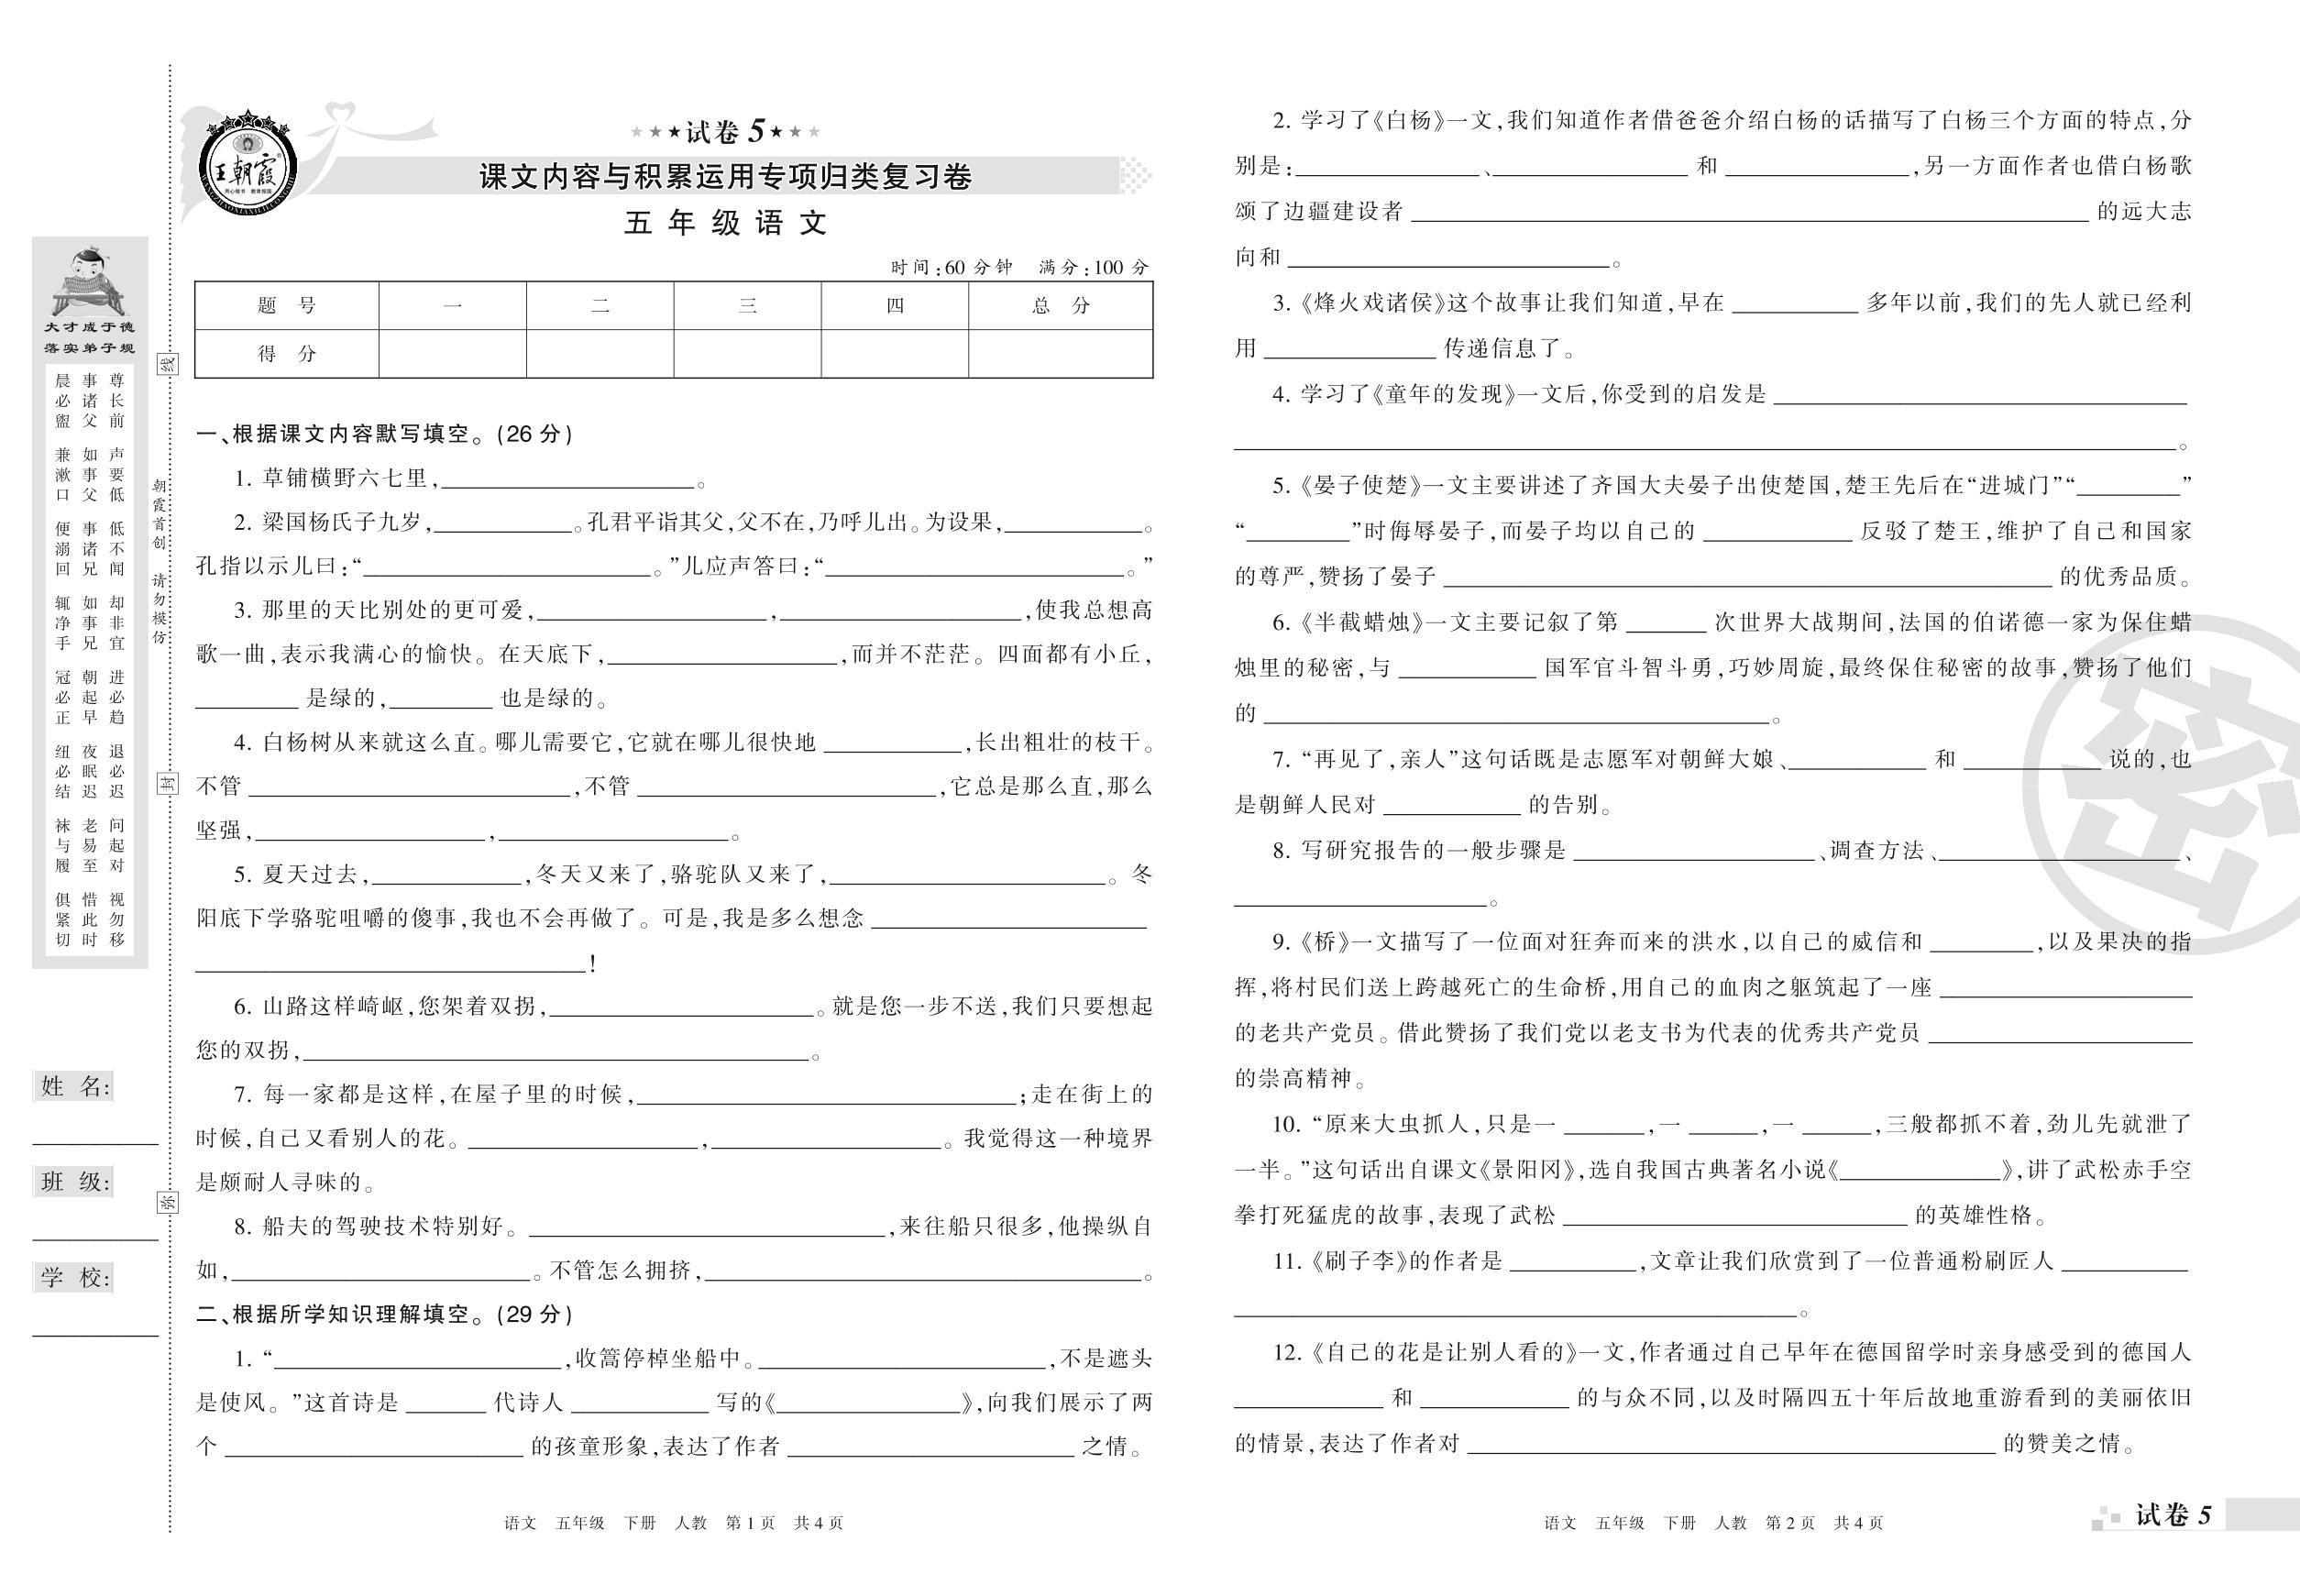 大才成于德
落实弟子规
尊长前 声要低 低不闻 却非宜 进必趋 退必迟 问起对 视勿移
事诸父 如事父 事诸兄 如事兄 朝起早 夜眠迟 老易至 惜此时
晨必盥 兼漱口 便溺回 辄净手 冠必正 纽必结 袜与履 俱紧切
朝霞首创 请勿模仿
线
封
弥
姓 名:
班 级:
学 校:
王朝霞
★★★试卷 5★★★
课文内容与积累运用专项归类复习卷
五 年 级 语 文
时间:60 分钟 满分:100 分
题 号 一 二 三 四 总 分
得 分
一、根据课文内容默写填空。(26 分)
1. 草铺横野六七里,______。
2. 梁国杨氏子九岁,______。孔君平诣其父,父不在,乃呼儿出。为设果,______。
孔指以示儿曰:“______。”儿应声答曰:“______。”
3. 那里的天比别处的更可爱,______,______,使我总想高
歌一曲,表示我满心的愉快。在天底下,______,而并不茫茫。四面都有小丘,
______ 是绿的,______ 也是绿的。
4. 白杨树从来就这么直。哪儿需要它,它就在哪儿很快地 ______,长出粗壮的枝干。
不管 ______,不管 ______,它总是那么直,那么
坚强,______,______。
5. 夏天过去,______,冬天又来了,骆驼队又来了,______。冬
阳底下学骆驼咀嚼的傻事,我也不会再做了。可是,我是多么想念 ______
______!
6. 山路这样崎岖,您架着双拐,______。就是您一步不送,我们只要想起
您的双拐,______。
7. 每一家都是这样,在屋子里的时候,______;走在街上的
时候,自己又看别人的花。______,______。我觉得这一种境界
是颇耐人寻味的。
8. 船夫的驾驶技术特别好。______,来往船只很多,他操纵自
如,______。不管怎么拥挤,______。
二、根据所学知识理解填空。(29 分)
1. “______,收篙停棹坐船中。______,不是遮头
是使风。”这首诗是 ______ 代诗人 ______ 写的《______》,向我们展示了两
个 ______ 的孩童形象,表达了作者 ______ 之情。
语文 五年级 下册 人教 第 1 页 共 4 页
2. 学习了《白杨》一文,我们知道作者借爸爸介绍白杨的话描写了白杨三个方面的特点,分
别是:______、______ 和 ______,另一方面作者也借白杨歌
颂了边疆建设者 ______ 的远大志
向和 ______。
3.《烽火戏诸侯》这个故事让我们知道,早在 ______ 多年以前,我们的先人就已经利
用 ______ 传递信息了。
4. 学习了《童年的发现》一文后,你受到的启发是 ______
______。
5.《晏子使楚》一文主要讲述了齐国大夫晏子出使楚国,楚王先后在“进城门”“______”
“______”时侮辱晏子,而晏子均以自己的 ______ 反驳了楚王,维护了自己和国家
的尊严,赞扬了晏子 ______ 的优秀品质。
6.《半截蜡烛》一文主要记叙了第 ______ 次世界大战期间,法国的伯诺德一家为保住蜡
烛里的秘密,与 ______ 国军官斗智斗勇,巧妙周旋,最终保住秘密的故事,赞扬了他们
的 ______。
7. “再见了,亲人”这句话既是志愿军对朝鲜大娘、______ 和 ______ 说的,也
是朝鲜人民对 ______ 的告别。
8. 写研究报告的一般步骤是 ______、调查方法、______、
______。
9.《桥》一文描写了一位面对狂奔而来的洪水,以自己的威信和 ______,以及果决的指
挥,将村民们送上跨越死亡的生命桥,用自己的血肉之躯筑起了一座 ______
的老共产党员。借此赞扬了我们党以老支书为代表的优秀共产党员 ______
的崇高精神。
10. “原来大虫抓人,只是一 ______,一 ______,一 ______,三般都抓不着,劲儿先就泄了
一半。”这句话出自课文《景阳冈》,选自我国古典著名小说《______》,讲了武松赤手空
拳打死猛虎的故事,表现了武松 ______ 的英雄性格。
11.《刷子李》的作者是 ______,文章让我们欣赏到了一位普通粉刷匠人 ______
______。
12.《自己的花是让别人看的》一文,作者通过自己早年在德国留学时亲身感受到的德国人
______ 和 ______ 的与众不同,以及时隔四五十年后故地重游看到的美丽依旧
的情景,表达了作者对 ______ 的赞美之情。
密
语文 五年级 下册 人教 第 2 页 共 4 页
试卷 5